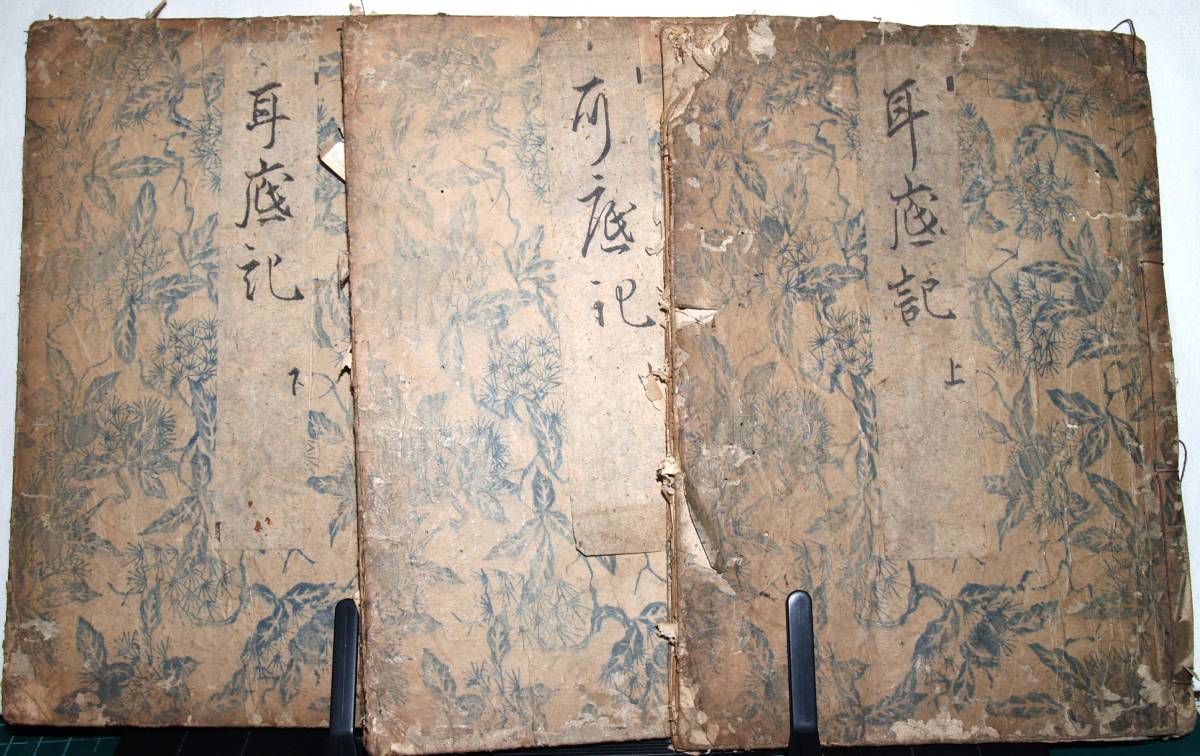 耳底記
上
耳底記
耳底記
下